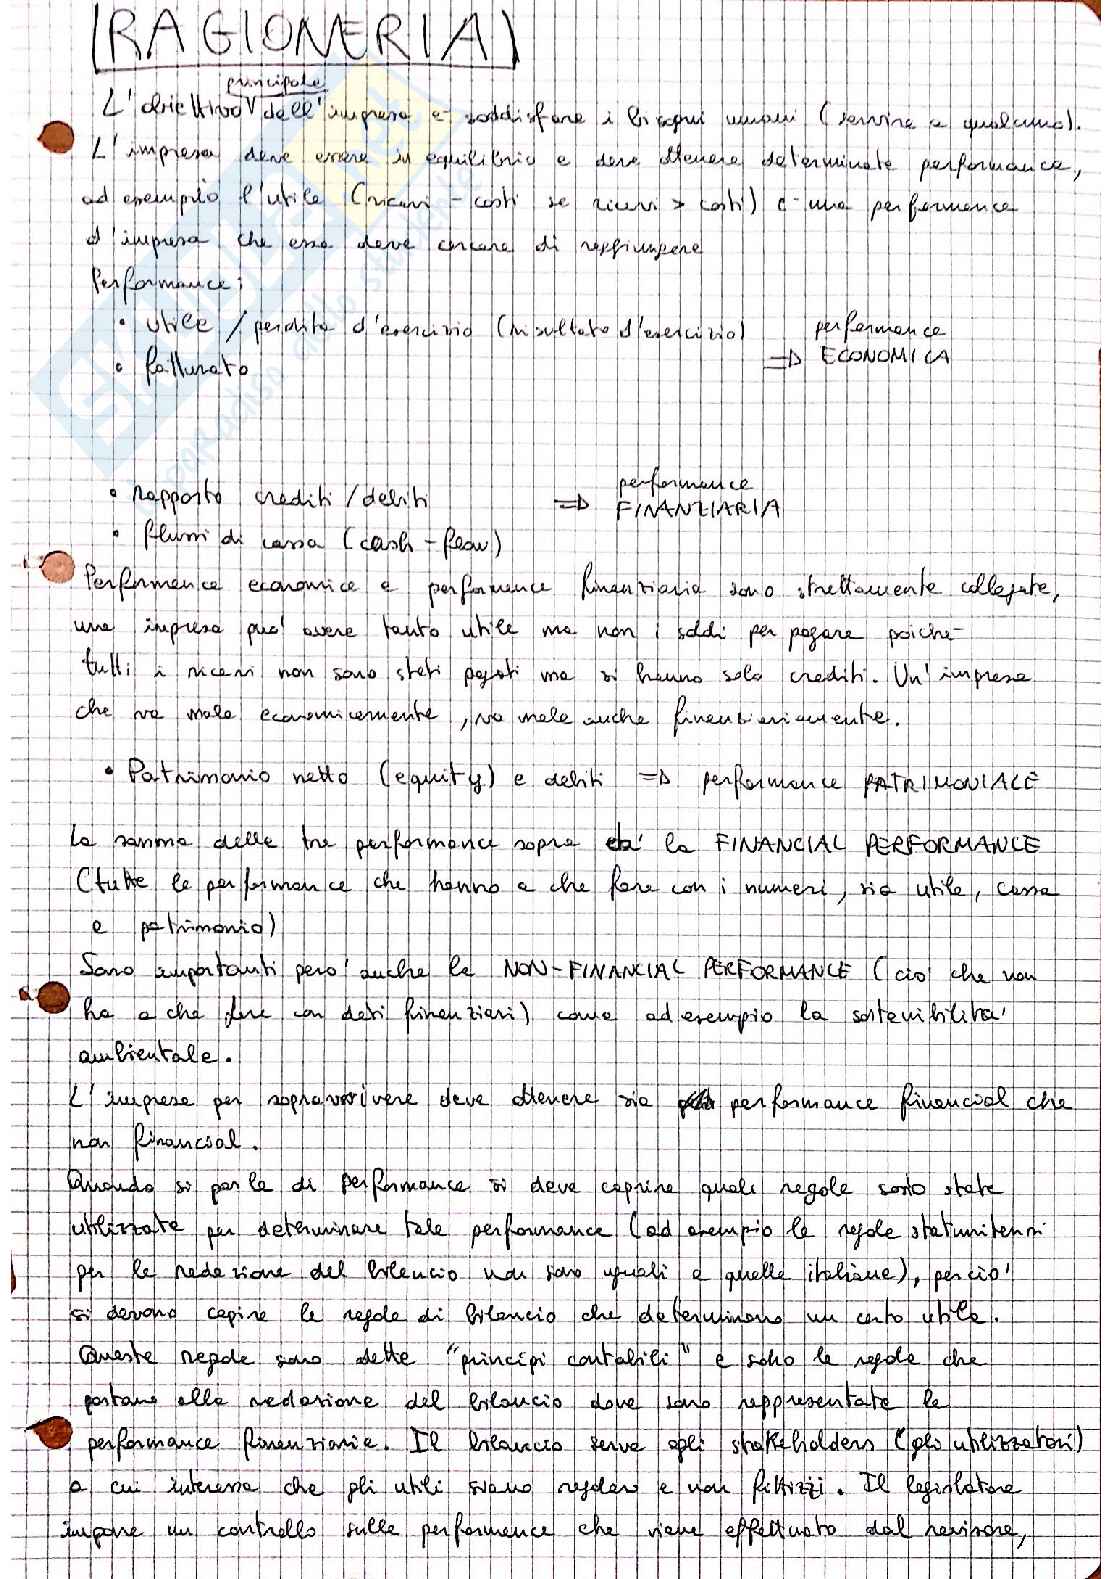 RAGIONERIA
principale
L'obiettivo dell'impresa è soddisfare i bisogni umani (servire a qualcuno).
L'impresa deve essere in equilibrio e deve ottenere determinate performance,
ad esempio l'utile (ricavi - costi se ricavi > costi) è una performance
d'impresa che essa deve cercare di raggiungere
Performance:
• utile / perdita d'esercizio (risultato d'esercizio)
performance
• fatturato
⇒ ECONOMICA
performance
• rapporto crediti / debiti ⇒ FINANZIARIA
• flussi di cassa (cash-flow)
Performance economica e performance finanziaria sono strettamente collegate,
una impresa può avere tanto utile ma non i soldi per pagare poiché
tutti i ricavi non sono stati pagati ma si hanno solo crediti. Un'impresa
che va male economicamente, va male anche finanziariamente.
• Patrimonio netto (equity) e debiti ⇒ performance PATRIMONIALE
La somma delle tre performance sopra dà la FINANCIAL PERFORMANCE
(tutte le performance che hanno a che fare con i numeri, sia utile, cassa
e patrimonio)
Sono importanti però anche le NON-FINANCIAL PERFORMANCE (ciò che non
ha a che fare con dati finanziari) come ad esempio la sostenibilità
ambientale.
L'impresa per sopravvivere deve ottenere sia performance financial che
non financial.
Quando si parla di performance si deve capire quali regole sono state
utilizzate per determinare tale performance (ad esempio le regole statunitensi
per la redazione del bilancio non sono uguali a quelle italiane), perciò
si devono capire le regole di bilancio che determinano un certo utile.
Queste regole sono dette "principi contabili" e sono le regole che
portano alla redazione del bilancio dove sono rappresentate le
performance finanziarie. Il bilancio serve agli stakeholders (gli utilizzatori)
a cui interessa che gli utili siano regolari e non fittizi. Il legislatore
impone un controllo sulle performance che viene effettuato dal revisore,